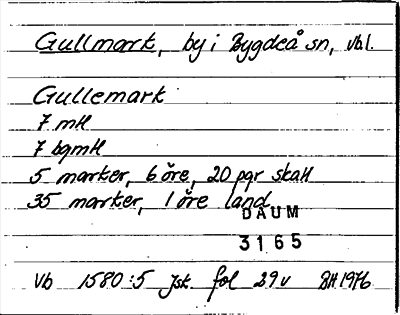 Gullmark, by i Bygdeå sn, vbl.
Gullemark
7 mtl
7 bgmtl
5 marker, 6 öre, 20 pgr skatt
35 marker, 1 öre land
DAUM
3165
Vb 1580:5 Jsk. fol 29v BH 1976